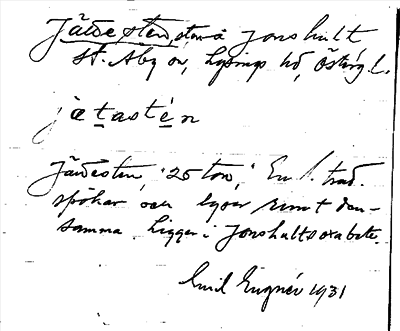 Jättesten, sten å Jonshult
St. Åby sn, Lysings hd, Östergl.
jætastén
Jättesten, "25 ton," En l. trad.
spökar och lyser runt den-
samma. Ligger i Jonshults
Emil Lugnér 1931